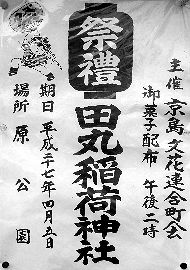 主催 京島文花連合町会
御菓子配布 午後二時
祭禮
田丸稲荷神社
期日 平成二十七年四月五日
場所 原公園